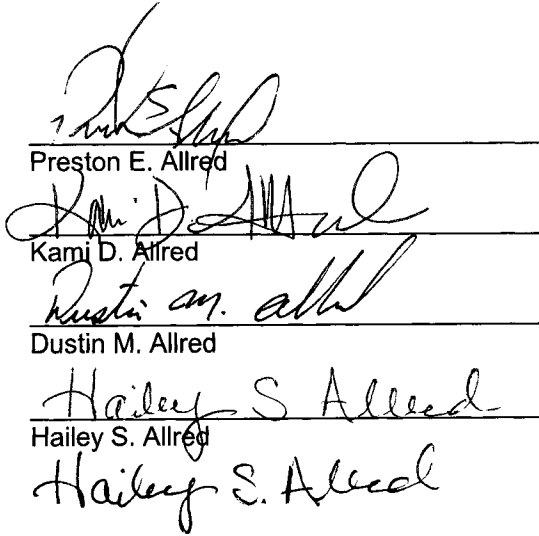 Preston E. Allred
Kami D. Allred
Kami D. Allred
Dustin M. Allred
Dustin M. Allred
Hailey S Allred
Hailey S. Allred
Hailey S. Allred